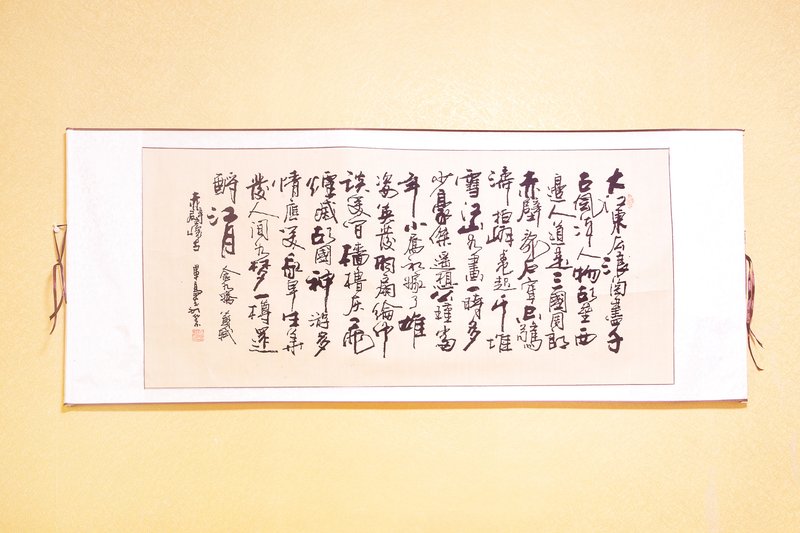 大江東去浪淘盡千
古風流人物故壘西
邊人道是三國周郎
赤壁亂石穿空驚
濤拍岸卷起千堆
雪江山如畫一時多
少豪傑遙想公瑾當
年小喬初嫁了雄
姿英發羽扇綸巾
談笑間檣櫓灰飛
煙滅故國神游多
情應笑我早生華
發人間如夢一樽還
酹江月 念奴嬌 蘇軾
赤壁懷古